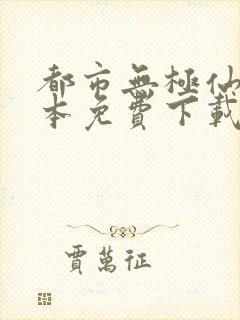 都市無極仙
本免費下載
賈萬征